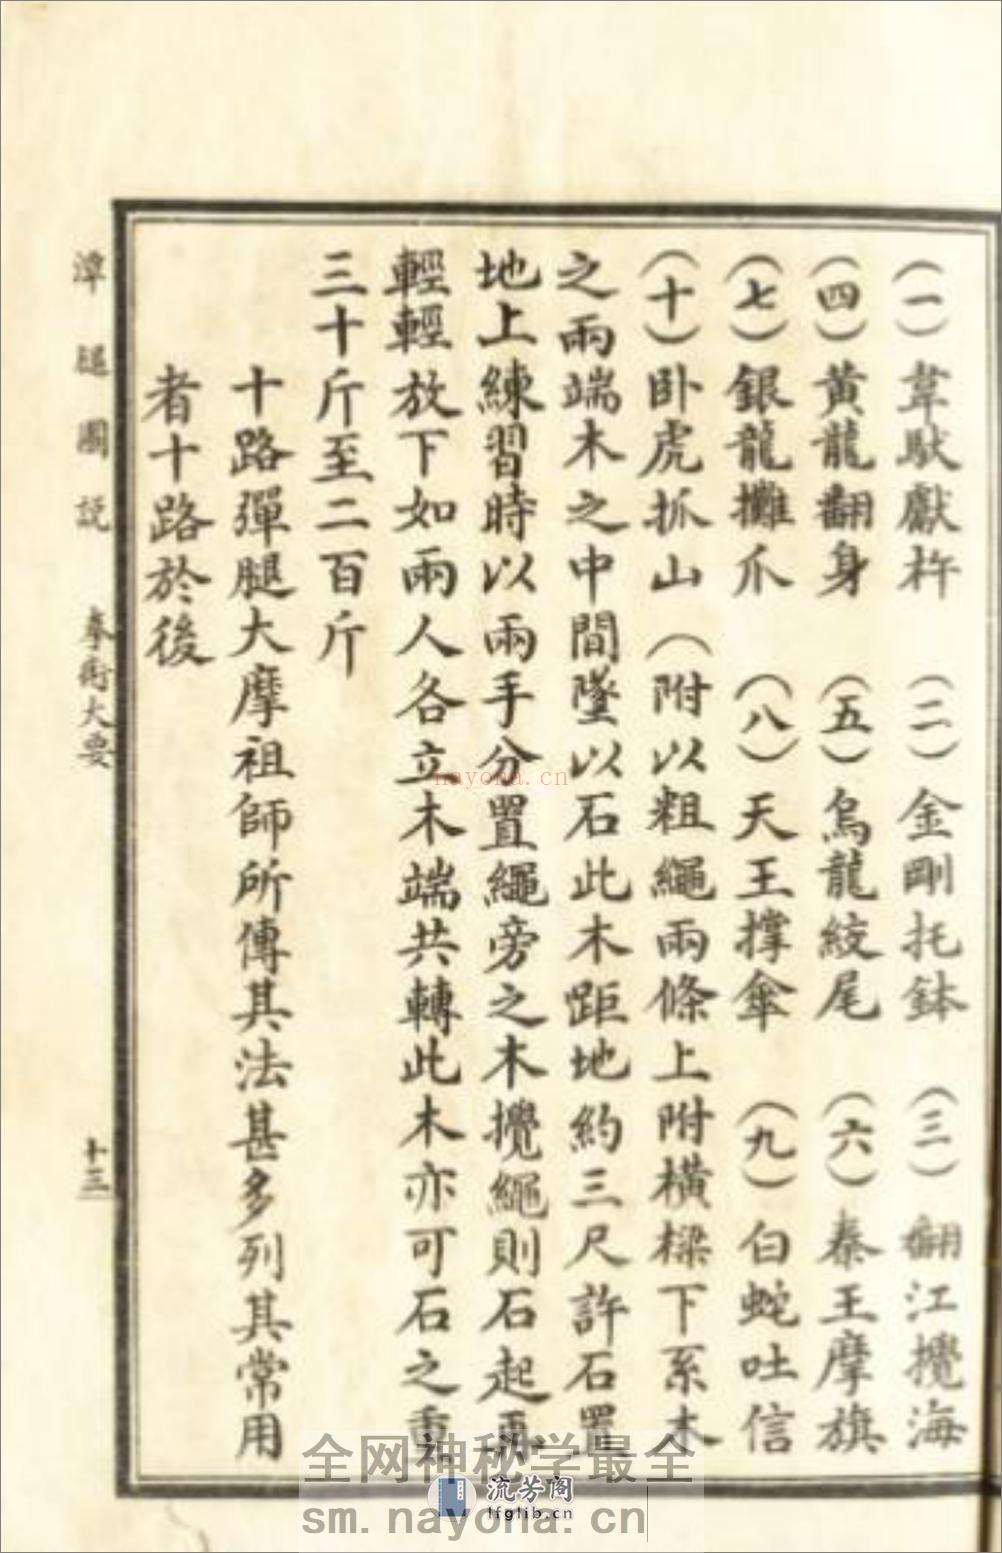 (一)韋馱獻杵 (二)金剛托鉢 (三)翻江攪海
(四)黃龍翻身 (五)烏龍絞尾 (六)秦王摩旗
(七)銀龍攤爪 (八)天王撑傘 (九)白蛇吐信
(十)卧虎抓山(附以粗繩兩條上附橫樑下系木
之兩端木之中間墜以石此木距地約三尺許石置
地上練習時以兩手分置繩旁之木攪繩則石起再
輕輕放下如兩人各立木端共轉此木亦可石之重
三十斤至二百斤
十路彈腿大摩祖師所傳其法甚多列其常用
者十路於後
潭腿圖説 拳術大要 十三
nayona.cn
全网神秘学最全
流芳阁
lfglib.cn
sm.nayona.cn